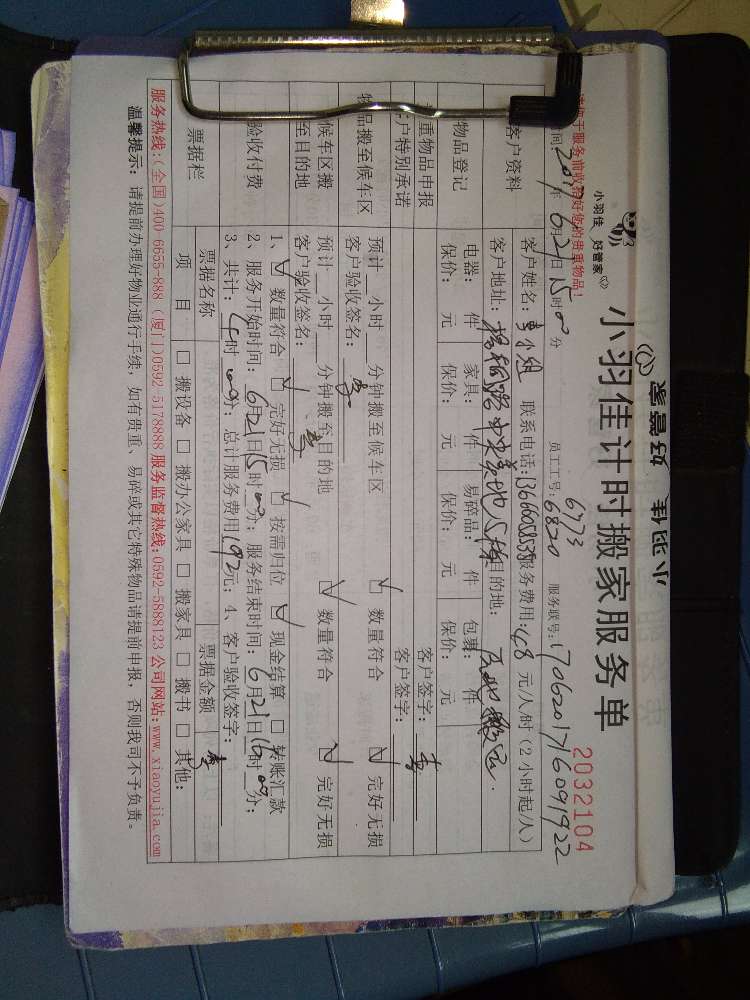 小羽佳 好管家
小羽佳 好管家
小羽佳计时搬家服务单
2032104
员工工号: 6773 6820 服务联号: 1706201716091922
时间: 2017年6月21日15时00分
请您于服务前收拾好您的贵重物品!
客户资料
客户姓名: 李小姐 联系电话: 服务费用: 48 元/人/时(2小时起/人)
客户地址: 目的地: 原地搬运.
物品登记
电器: 件 家具: 件 易碎品: 件 包裹: 件
保价: 元 保价: 元 保价: 元 保价: 元
贵重物品申报 客户签字:
客户特别承诺 客户签字: 李
物品搬至候车区
预计__小时__分钟搬至候车区 ☑ 数量符合 ☑ 完好无损
客户验收签名: 李
候车区搬至目的地
预计__小时__分钟搬至目的地 ☑ 数量符合 ☑ 完好无损
客户验收签名: 李
验收付费
1、☑ 数量符合 ☑ 完好无损 ☑ 按需归位 ☑ 现金结算 □ 转账汇款
2、服务开始时间: 6月21日15时00分; 服务结束时间: 6月21日16时00分;
3、共计: 4时00分; 总计服务费用192元; 4、客户验收签字: 李
票据栏
票据名称 票据金额
项目 □ 搬设备 □ 搬办公家具 □ 搬家具 □ 搬书 □ 其他:
服务热线:(全国)400-6655-888 (厦门)0592-5178888 服务监督热线:0592-5888123 公司网站:www.xiaoyujia.com
温馨提示: 请提前办理好物业通行手续,如有贵重、易碎或其它特殊物品请提前申报,否则我司不予负责。